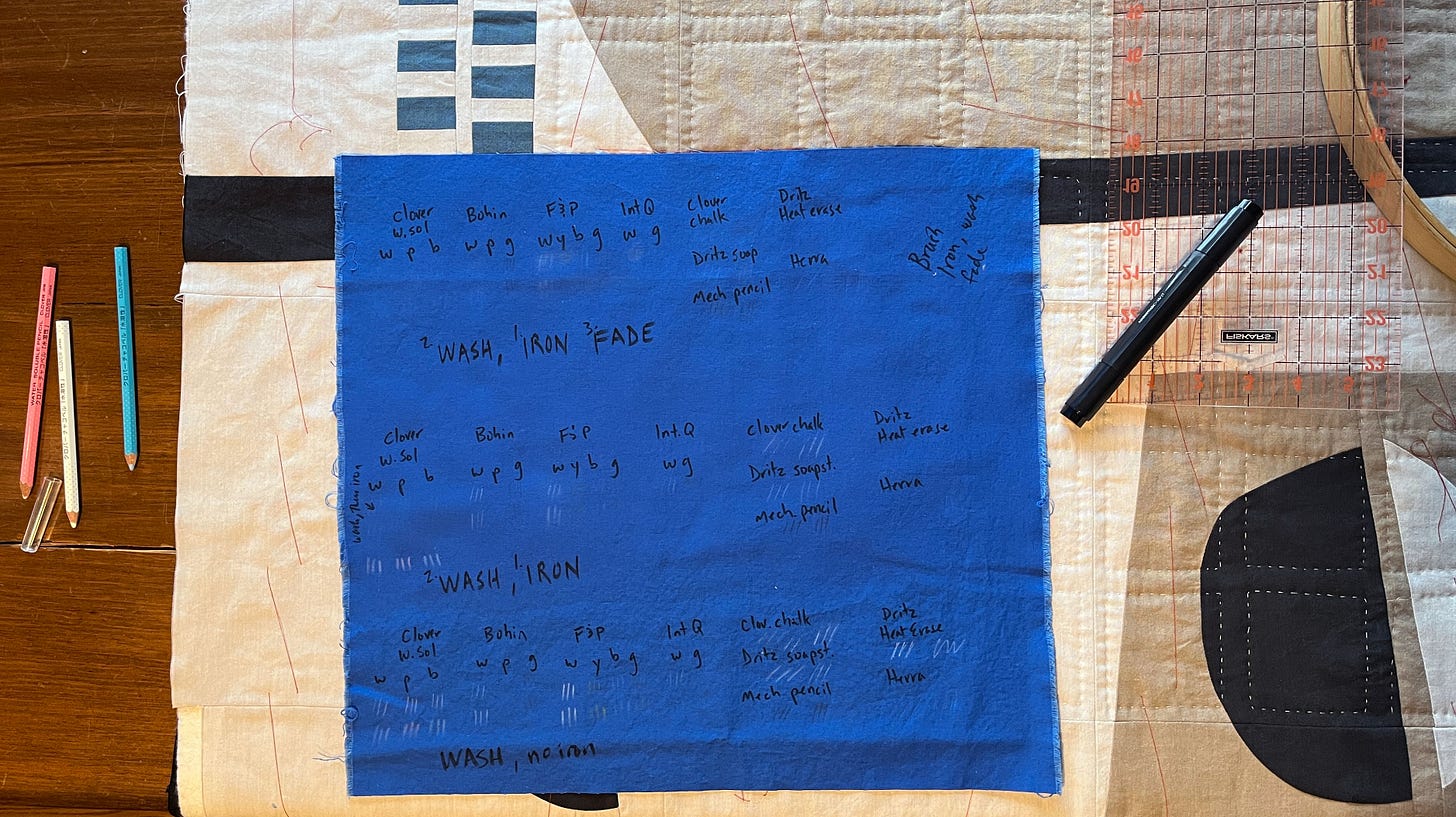 Clover
w.sol
w p b
Bohin
w p g
F&P
w y b g
Int Q
w g
Clover
chalk
Dritz
Heat erase
Dritz soap
Herra
Mech pencil
Brush
Iron, wash
fade
2 WASH, 1 IRON 3 FADE
Clover
w. Sol
w p b
Bohin
w p g
F&P
w y b g
Int. Q
w g
Clover chalk
Dritz
Heat erase
Dritz soapst.
Herra
Mech pencil
wash, then iron
2 WASH, 1 IRON
Clover
w. Sol
w p b
Bohin
w p g
F&P
w y b g
Int Q
w g
Clov. chalk
Dritz
Heat Erase
Dritz soapst.
Herra
Mech pencil
WASH, no iron
WATER SOLUBLE PENCIL CLOVER
FISKARS
15
16
17
18
19
20
21
22
23
16
17
18
19
20
21
22
23
1 2 3 4 5